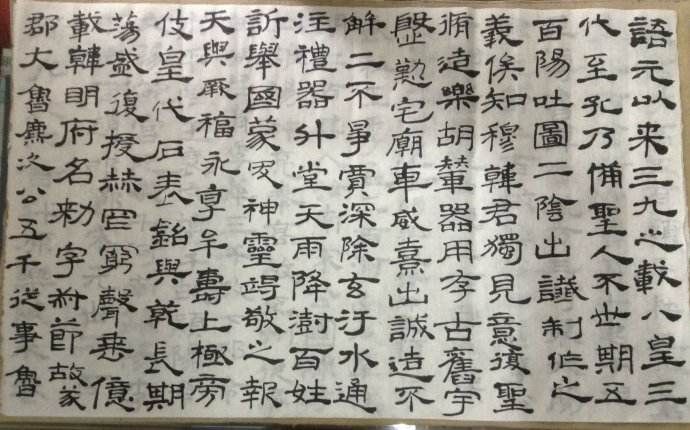 語元以来三九之載八皇三
代至孔乃備聖人不世期五
百陽吐圖二陰出讖制作之
義俟知穆韓君獨見意復聖
脩造樂胡輦器用存古舊宇
慇懃宅廟車威熹出誠造不
解工不爭賈深除玄汙水通
注禮器升堂天雨降澍百姓
訢舉國蒙神靈竭敬之報
天與厥福永享牟壽上極旁
伎皇代石表銘與乾長期
蕩盛復授赫罔窮聲垂億
載韓明府名勑字叔節故涿
郡大魯麃次公五千從事魯